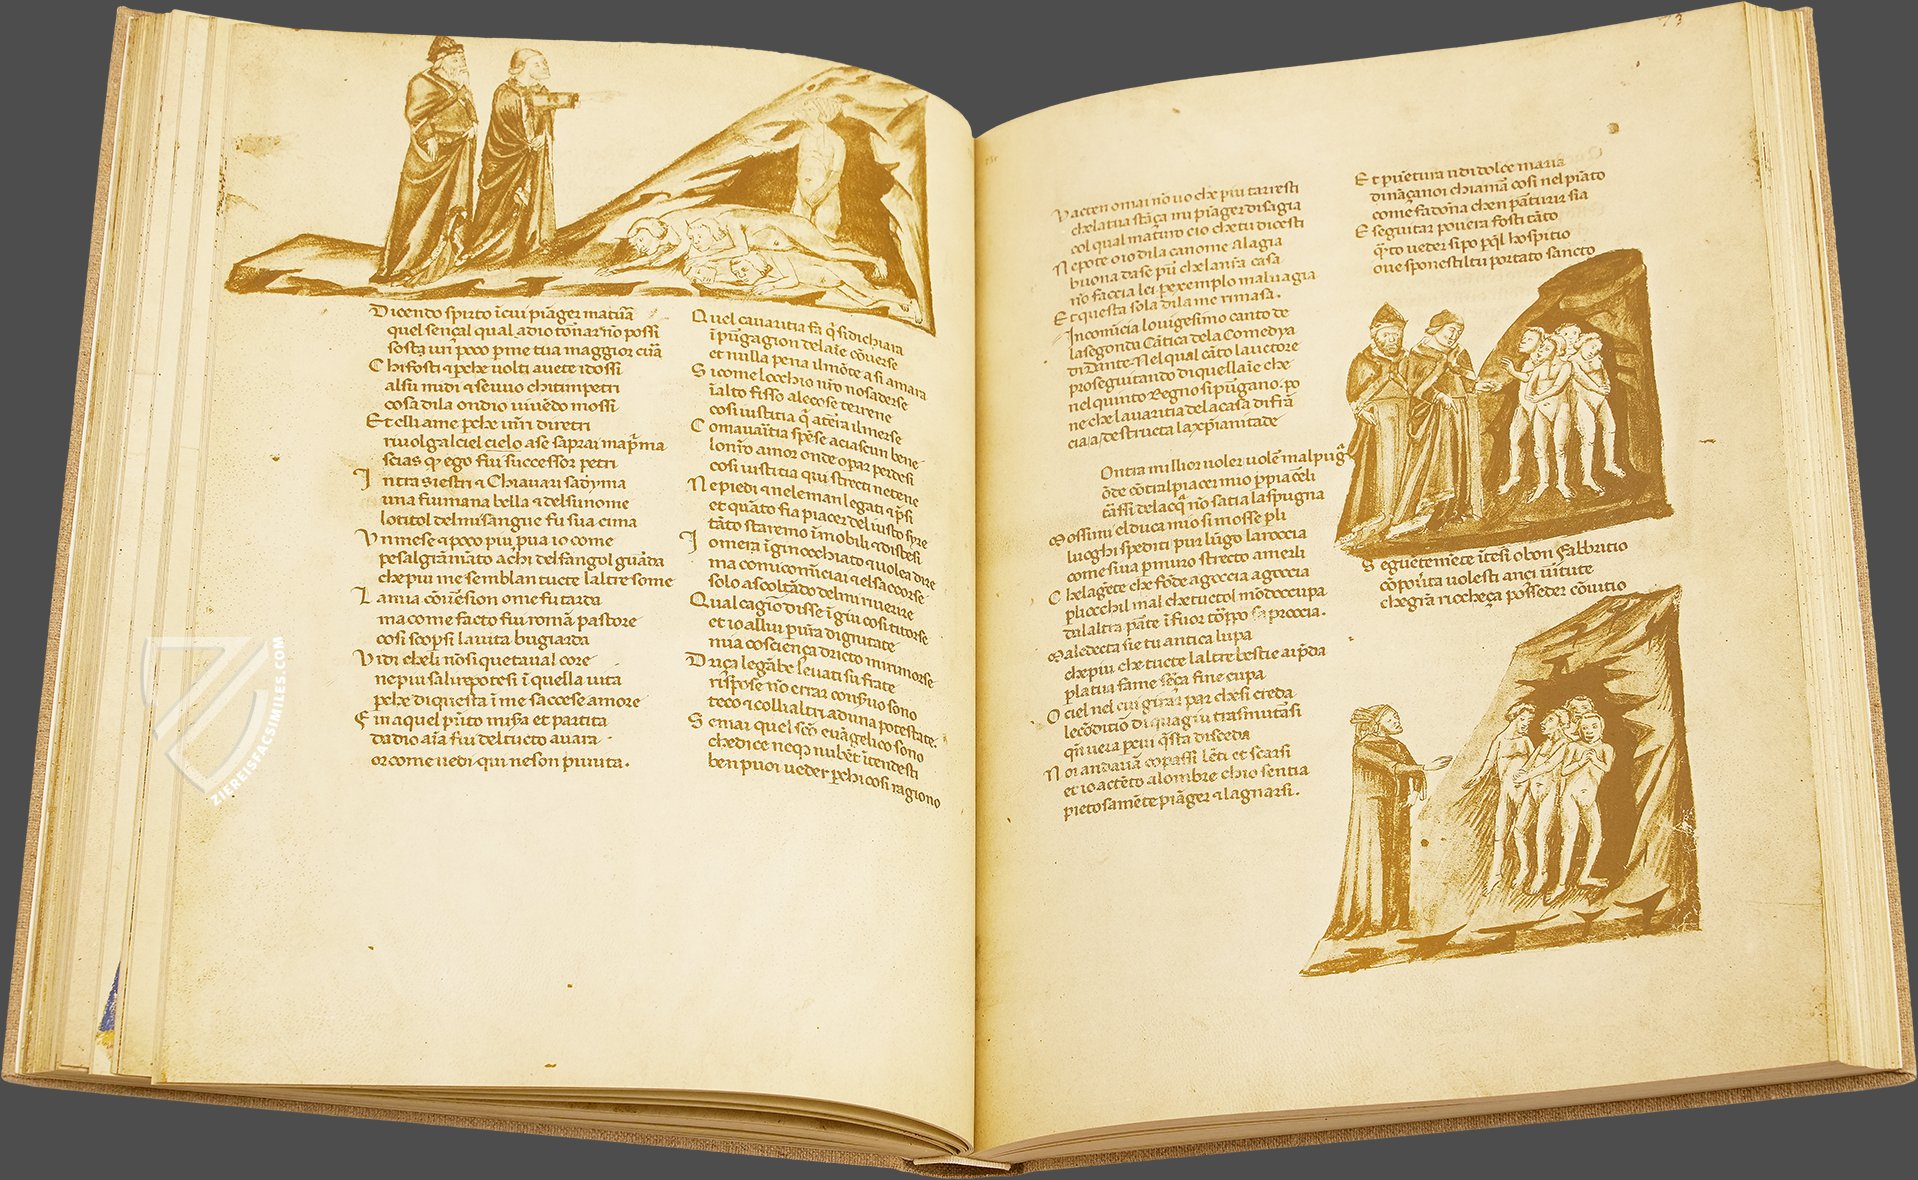 Dicendo spirto ĩcui piãger matũa
quel sençal qual adio tõnar nõ possi
sosta un poco pme tua maggior cura
Chi fosti ꝛ pche uolti auete idossi
al su mi di ꝛ se uuo chitimpetri
cosa dila ondio uiuẽdo mossi
Et elli ame pche uñri diretri
riuolga lciel cielo ase saprai ma pma
scias q ego fiu successor petri
Intra siestri ꝛ Chiauari sadyma
una fiumana bella ꝛ del suo nome
lo titol del mi sangue fu sua cima
Un mese ꝛ poco piu pua io come
pesa lgrã mãto achi del fangol guarda
che piu me semblan tucte laltre some
La mia cõuersion ome fu tarda
ma come facto fiu romã pastore
cosi scopsi la uita bugiarda
Vidi cheli nõ si quetaua l core
ne piu salir potesi ĩ quella uita
pche di questa ĩ me saccese amore
Fin aquel pũto misa et partita
da dio aĩa fiu del tucto auara
or come uedi qui ne son punita.
Quel cauaritia fa q si dichiara
ĩ purgagion delaĩe cõuerse
et nulla pena il mõte a si amara
Si come locchio nr̃o nosaderse
ĩ alto fisso ale cose terrene
cosi iustitia q atẽra il merse
Como auaritia spẽse aciascun bene
lo nr̃o amor onde opar perdesi
cosi iustitia qui strecti ne tene
Ne piedi ꝛ ne le man legati ꝛ psi
et quãto fia piacer del iusto syre
tãto staremo ĩmobili ꝛ distesi
Io mera ĩginocchiato ꝛ uolea dire
ma comi comĩciai ꝛ el saccorse
solo ascoltãdo del mi riuerire
Qual cagiõ disse ĩ giu cosi ti torse
et io allui p ura dignitate
mia cosciença dricto mi rimorse
Driça le gãbe leuati su frate
rispose nõ errar conseruo sono
teco ꝛ colli altri ad una potestate.
Se mai quel sco euãgelico sono
che dice neq nubẽt ĩtendesti
ben puoi ueder pchi cosi ragiono
73
Vatten omai nõ uo che piu tarresti
che la tua stãça mi piãger disagia
col qual maturo cio che tu dicesti
Nepote o io dila canome Alagia
buona da se pur che la nr̃a casa
nõ faccia lei p exemplo maluagia
Et questa sola dila me rimasa.
Incomĩcia lo uigesimo canto de
la segonda Cãtica dela Comedya
di Dante. Nel qual cãto lauctore
proseguitando di quellaĩe che
nel quinto Regno si purgano. po
ne che lauaritia de la casa di frã
cia a destructa la xp̃ianitade
Ontra miglior uoler uoler mal pugna
õde cõtral piacer mio p piacerli
trassi de lacq nõ satia la spugna
Mossimi el duca mio si mosse p li
luoghi spediti pur lũgo la roccia
come si ua p muro strecto amerli
Che la gẽte che fõde agoccia agoccia
p li occhi il mal che tuctol mõdo occupa
da laltra parte ĩ fuor troppo sa proccia.
Maledecta sie tu antica lupa
che piu che tucte laltre bestie ai preda
p la tua fame sẽça fine cupa
O ciel nel cui girar par che si creda
le cõditiõ di qua giu trasmutarsi
qñ uera p cui qsta disceda
Noi andauã co passi lẽti et scarsi
et io actẽto alombre chio sentia
pietosamẽte piãger ꝛ lagnarsi.
Et p uẽtura udi dolce maria
dinãça noi chiamar cosi nel piãto
come fa dõna che n parturir sia
E seguitar pouera fosti tãto
q̃to ueder si po p ql hospitio
oue sponesti l tu portato sancto
Seguẽtemẽte ĩtesi o bon Fabbritio
cõ pouerta uolesti anci uirtute
che grã riccheça posseder cõ uitio
ZIEREISFACSIMILES.COM